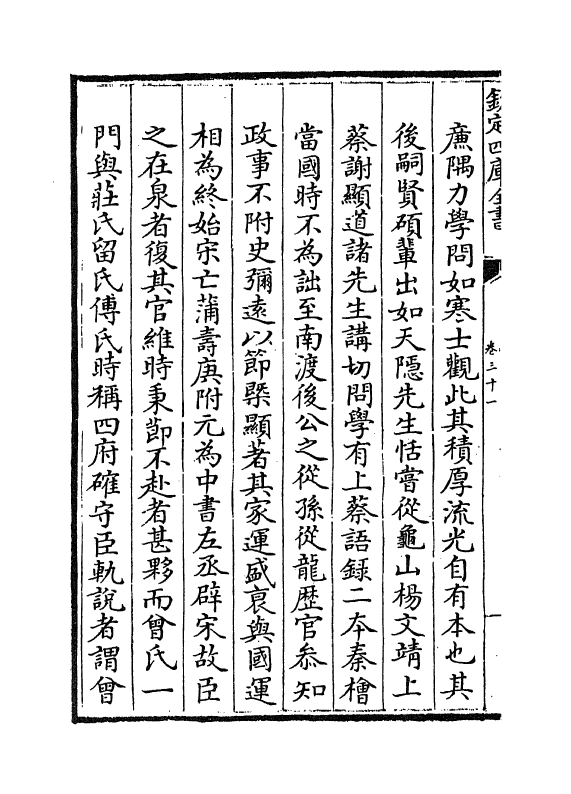 欽定四庫全書
卷三十一
廉隅力學問如寒士觀此其積厚流光自有本也其
後嗣賢碩輩出如天隱先生恬嘗從龜山楊文靖上
蔡謝顯道諸先生講切問學有上蔡語録二夲秦檜
當國時不為詘至南渡後公之從孫從龍歴官叅知
政事不附史彌逺以節槩顯著其家運盛衰與國運
相為終始宋亡蒲壽庚附元為中書左丞辟宋故臣
之在泉者復其官維時秉節不赴者甚夥而曾氏一
門與莊氏留氏傅氏時稱四府確守臣軌說者謂曾